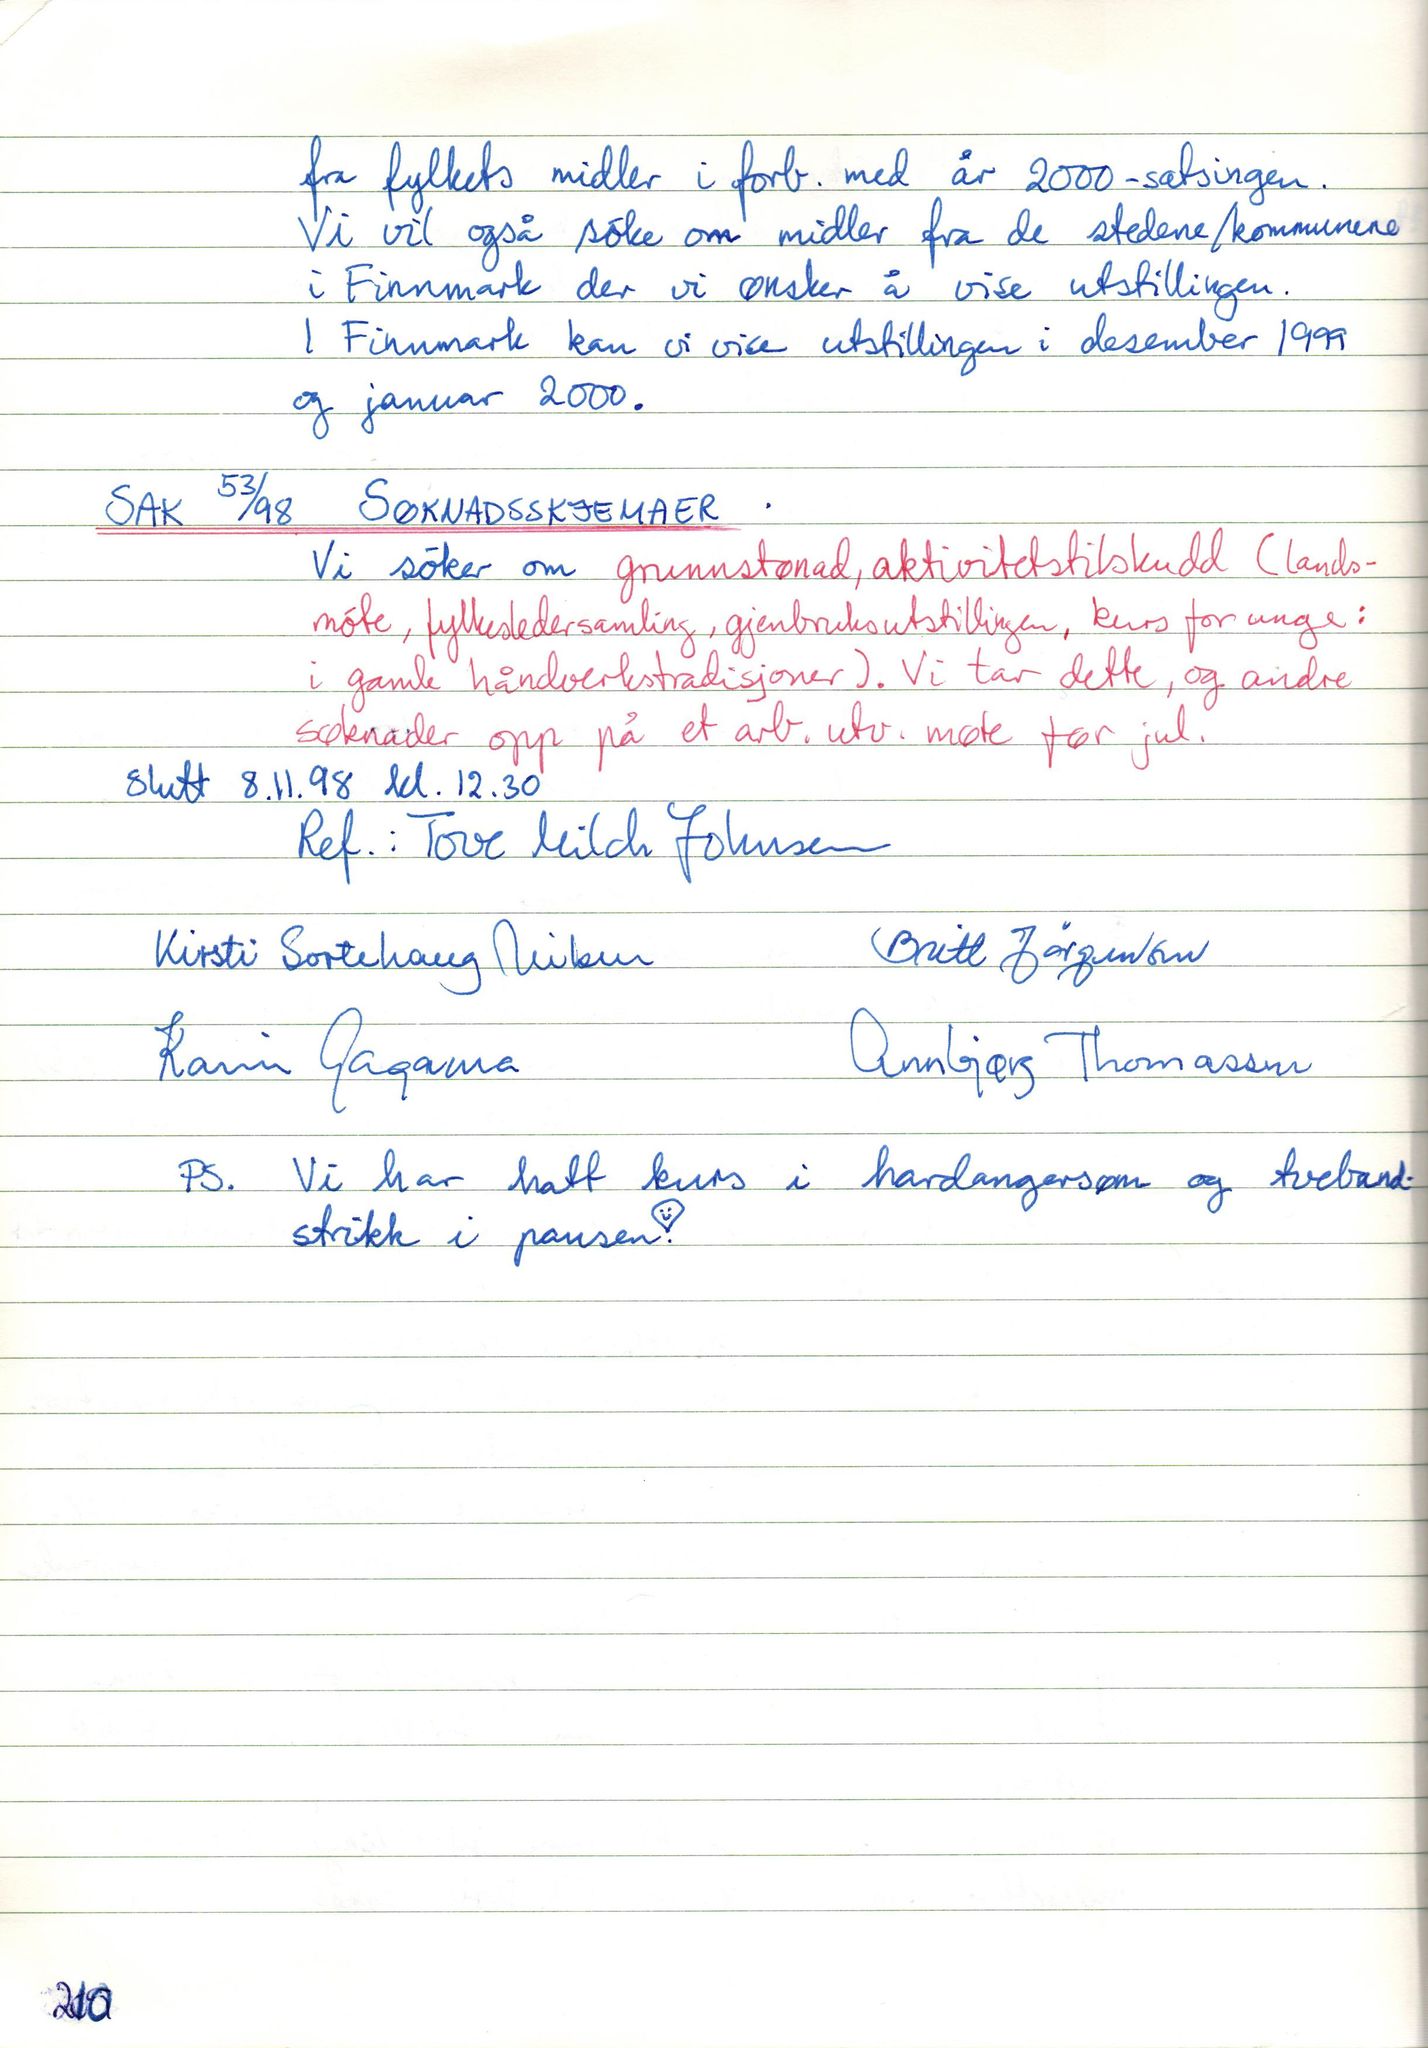 fra fylkets midler i forb. med år 2000-satsingen.
Vi vil også söke om midler fra de stedene/kommunene
i Finnmark der vi ønsker å vise utstillingen.
I Finnmark kan vi vise utstillingen i desember 1999
og januar 2000.
SAK 53/98 SØKNADSSKJEMAER.
Vi söker om grunnstønad, aktivitetstilskudd (lands-
möte, fylkesledersamling, gjenbruksutstillingen, kurs for unge:
i gamle håndverkstradisjoner). Vi tar dette, og andre
søknader opp på et arb. utv. møte før jul.
Slutt 8.11.98 kl. 12.30
Ref.: Tove Milch Johnsen
Kirsti Sortehaug Nilsen Britt Jörgensen
Karin Gagama Annbjørg Thomassen
PS. Vi har hatt kurs i hardangersøm og tveband-
strikk i pausen!
210